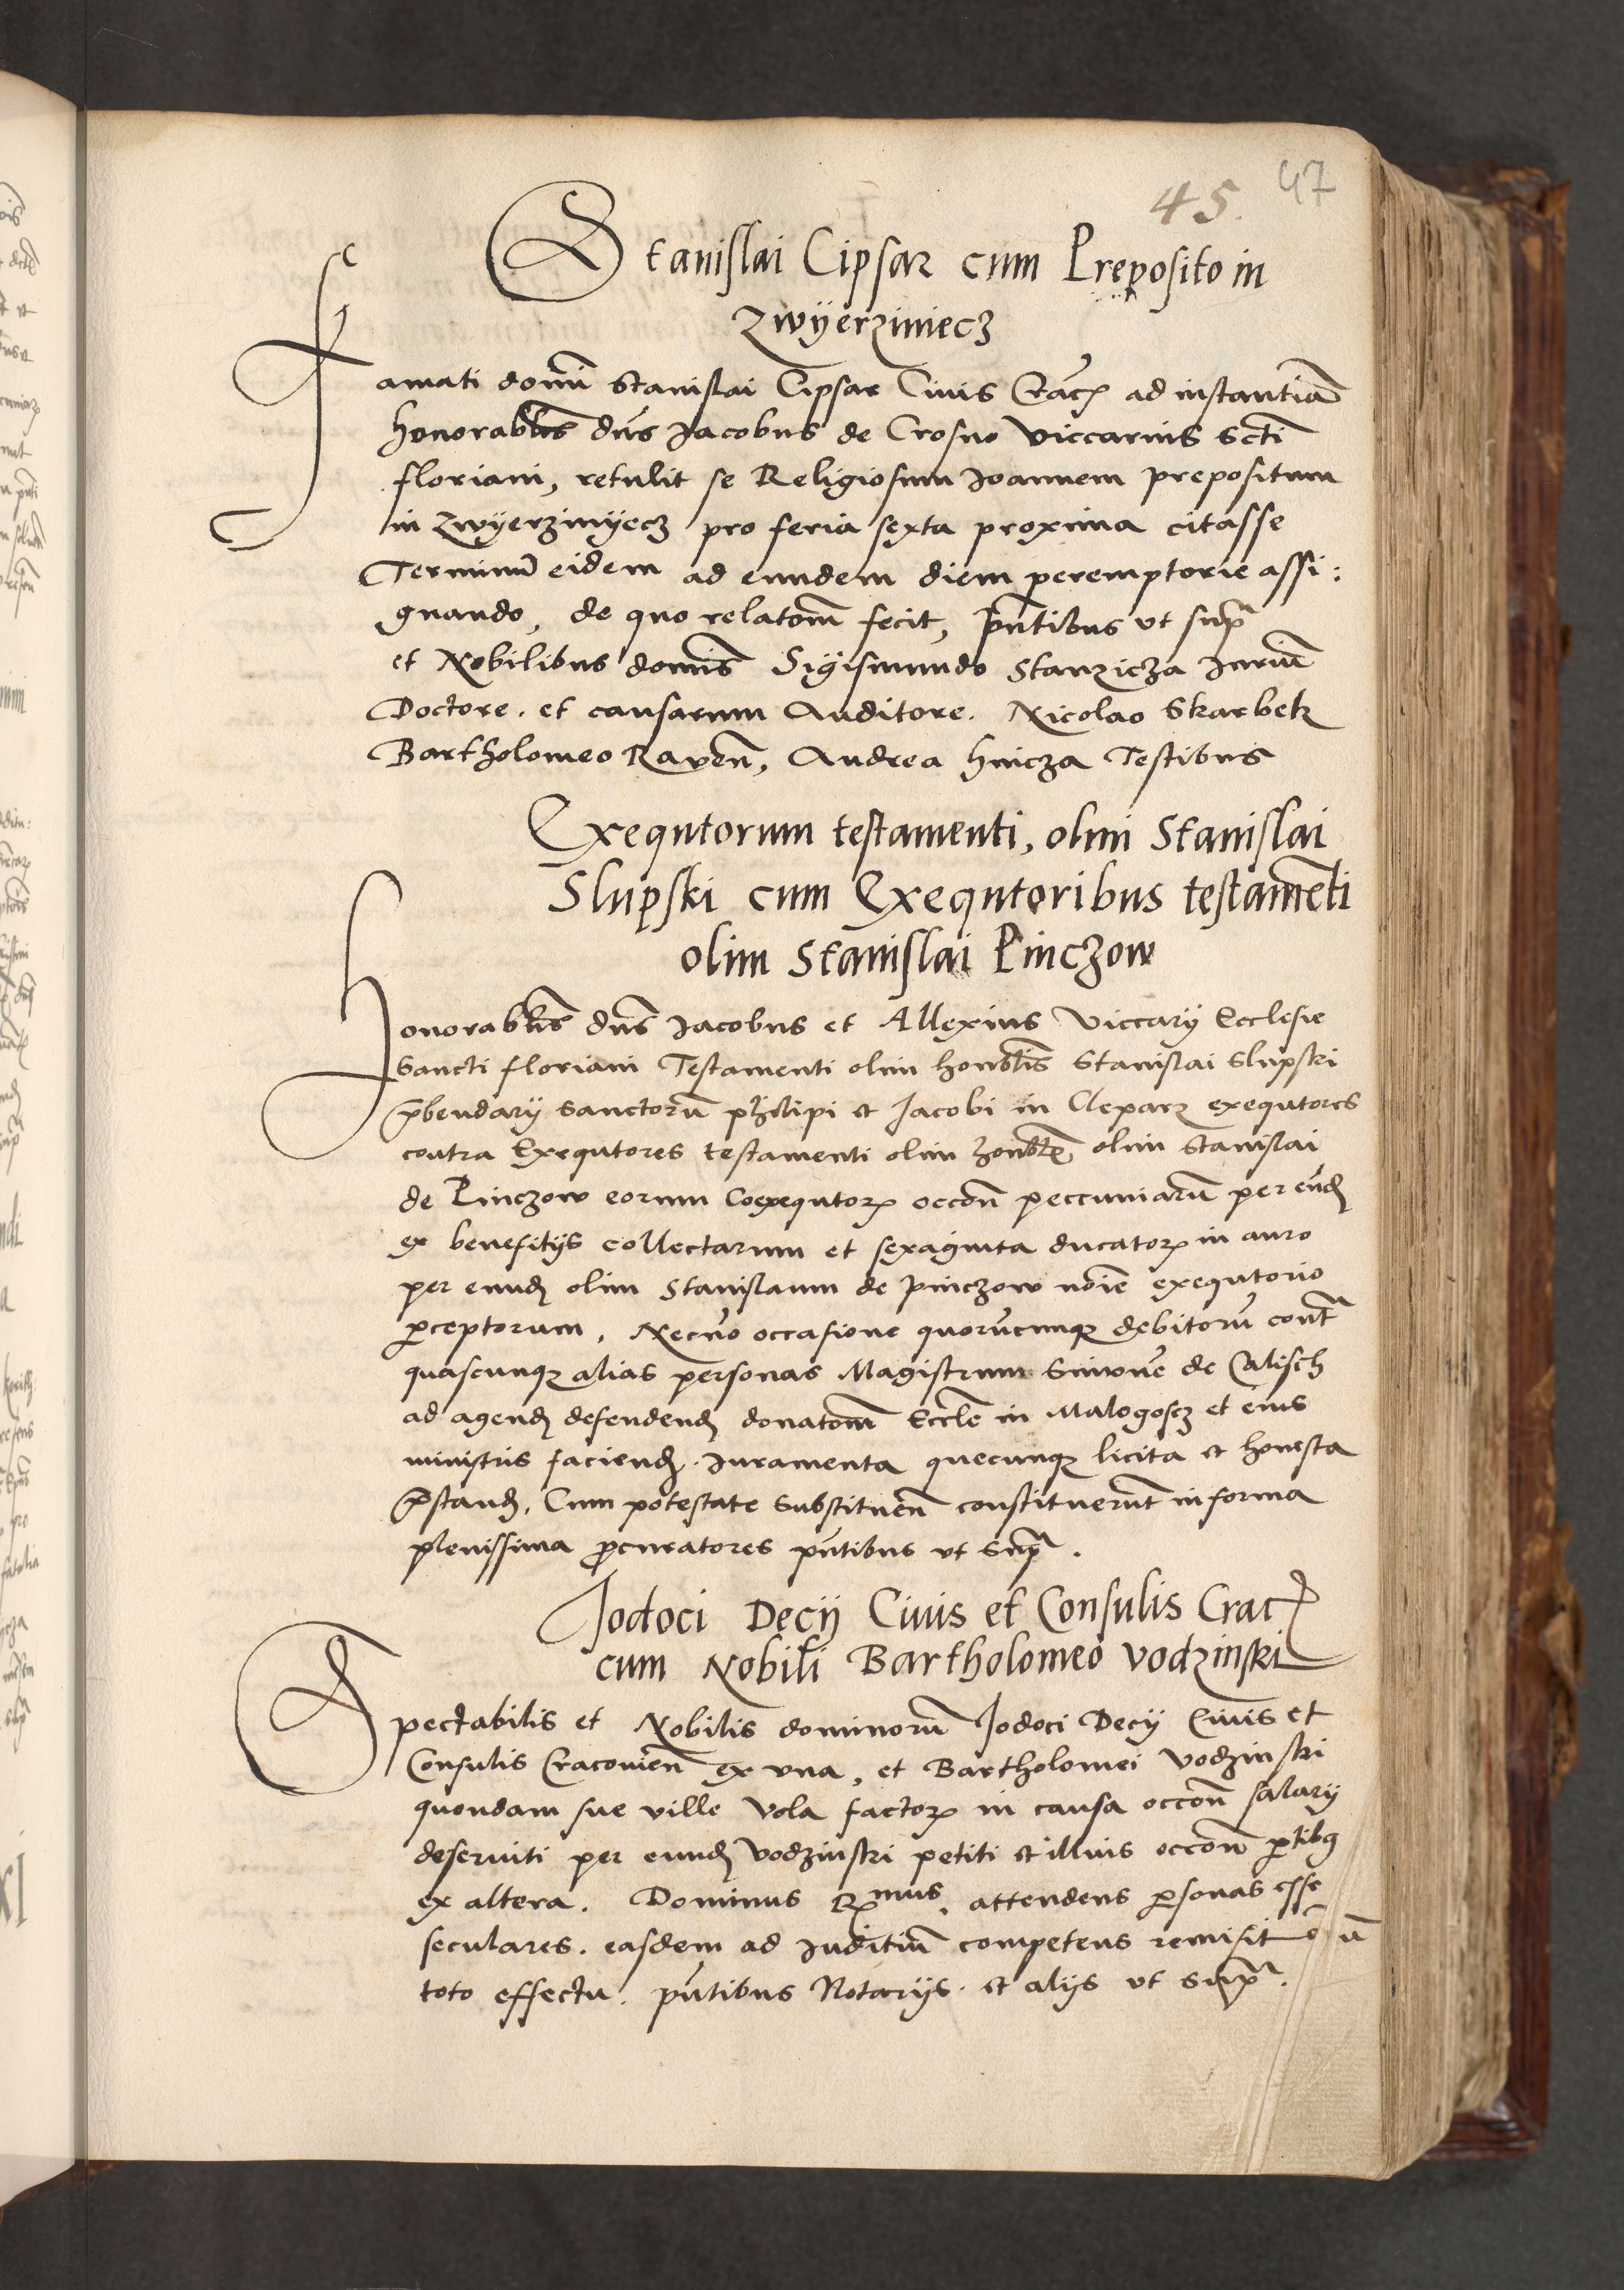 45. 47
Stanislai Cipsar cum Preposito in
Zwÿerziniecz
Famati domi͂ Stanislai Cipsar Ciuis Crac̃ ad instantia͂
honorab͂lis dn͂s Jacobus de Crosno viccarius Scti͂
floriani, retulit se Religiosum Joannem prepositum
in Zwÿerzinÿecz pro feria sexta proxima citasse
Terminu͂ eidem ad eundem diem peremptorie assi:
gnando, de quo relatom͂ fecit, pn͂tibus vt sup͂
et Nobilibus domi͂s Sigismundo Stanzicza Juriu͂
Doctore. et causarum Auditore. Nicolao Skarbek
Bartholomeo Raven͂, Andrea hincza Testibus
Exequtorum testamenti, olim Stanislai
Slupski cum Exequtoribus testame͂ti
olim Stanislai Pinczow
honorab͂les dn͂s Jacobus et Allexius viccarÿ Ecclesie
Sancti floriani Testamenti olim honb͂lis Stanislai Slupski
p͂bendarÿ Sanctoru͂ philipi et Jacobi in Cleparz exequtores
contra Exequtores testamenti olim honb͂le olim Stanislai
de Pinczow eorum coexequtorꝝ occon͂ peccuniaru͂ per eu͂d
ex benefitÿs collectarum et sexaginta ducatorꝝ in auro
per eund͂ olim Stanislaum de pinczow noi͂e exequtorio
ꝑceptorum, Necno͂ occasione quoru͂cunqꝫ debitoru͂ cont͂
quascunqꝫ alias personas Magistrum Simone͂ de Calisch
ad agend͂ defendend͂ donatom͂ Eccle͂ in Malogoscz et eius
ministris faciend͂. Juramenta quecunqꝫ licita et honesta
p͂stand͂. Cum potestate Substituen͂ constituerun͂t in forma
plenissima ꝓcuratores pn͂tibus vt sup͂.
Jodoci Decÿ Ciuis et Consulis Crac̃
cum Nobili Bartholomeo vodzinski
Spectabilis et Nobilis dominoru͂ Jodoci Decÿ Ciuis et
Consulis Cracouien͂ ex vna, et Bartholomei vodzinski
quondam sue ville Vola factorꝝ in causa occon͂ salarÿ
deseruiti per eund͂ vodzinski petiti et illius occon͂ ꝑtibꝰ
ex altera. Dominus Rmus. attendens ꝑsonas esse
seculares. easdem ad Juditiu͂ competens remisit
toto effectu. pn͂tibus Notarÿs. et alÿs vt sup͂.